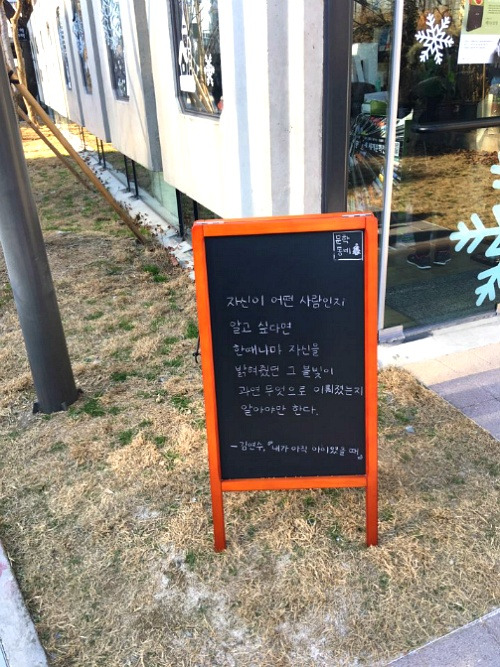 문학
동네
자신이 어떤 사람인지
알고 싶다면
한때나마 자신을
밝혀줬던 그 불빛이
과연 무엇으로 이뤄졌는지
알아야만 한다.
-김연수,『내가 아직 아이였을 때』